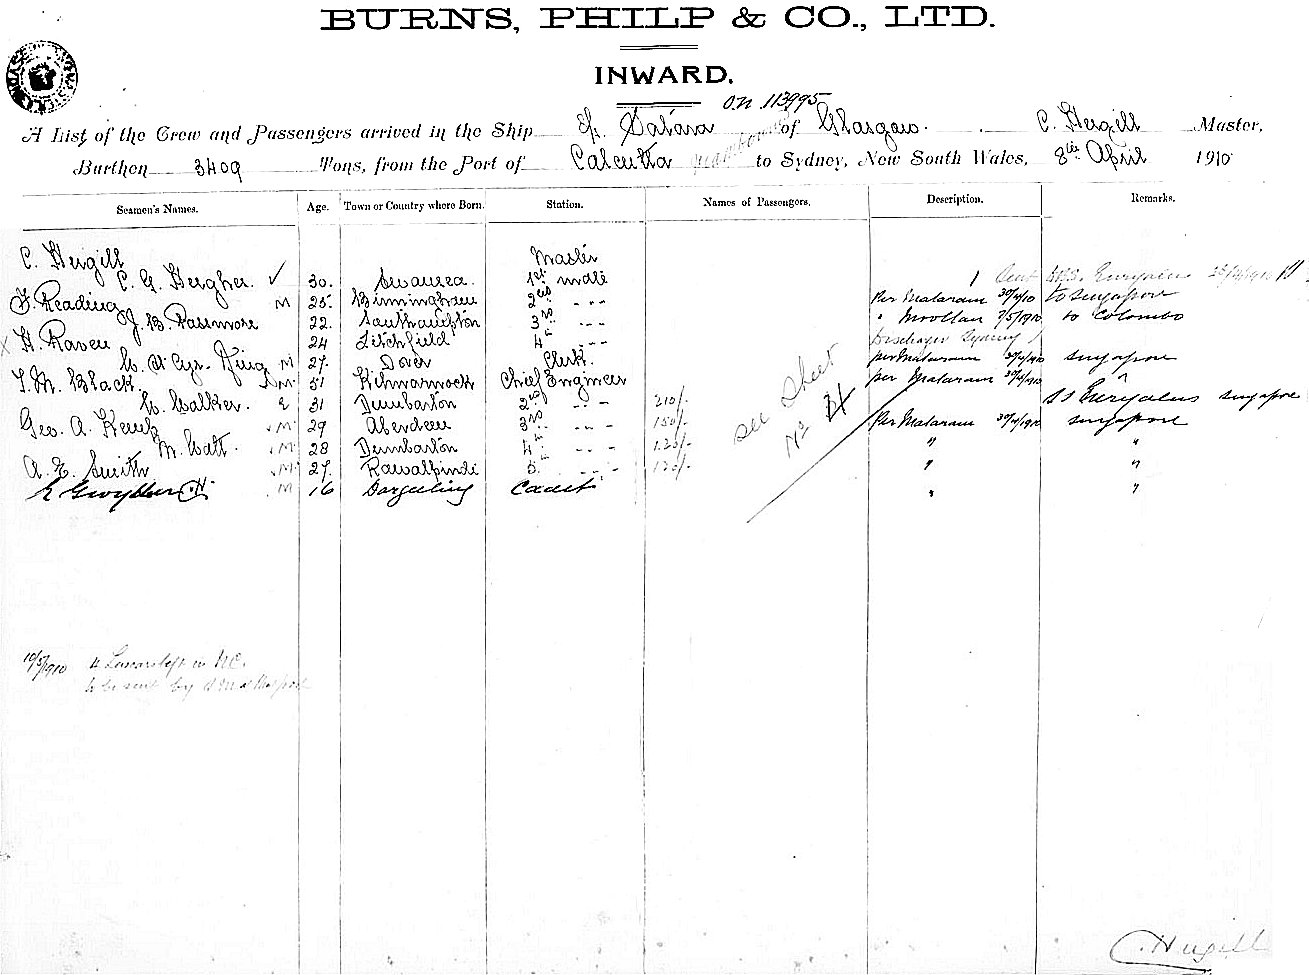 BURNS, PHILP & CO., LTD.
INWARD.
O.N. 113995
A List of the Crew and Passengers arrived in the Ship S/s Satara of Glasgow. C. Hugill Master,
Burthen 3409 Tons, from the Port of Calcutta to Sydney, New South Wales, 8th April 1910
Seamen's Names. Age. Town or Country where Born. Station. Names of Passengers. Description. Remarks.
C. Hugill Master
C. G. Hugher. ✓ 30. Swansea. 1st mate 1 S.S. Euryalus
F. Reading M 25. Birmingham 2nd - - - Per Mataram 30/4/10 to Singapore
J. B. Passmore 22. Southampton 3rd - - - " Mooltan 7/5/1910 to Colombo
X H. Raven 24 Litchfield 4th - - - Discharged Sydney
W. St Cyr. M 27. Dover Clerk. per Mataram 30/4/10 Singapore
T. M. Black. M 51 Kilmarnock Chief Engineer per Mataram 30/4/1910 "
W. Walker. E 31 Dumbarton 2nd - - - 210/- S S Euryalus Singapore
Geo. A. M 29 Aberdeen 3rd - - - 150/- Per Mataram 30/4/1910 Singapore
M. Watt. M 28 Dumbarton 4th - - - 120/- " "
A. E. Smith M 27. Rawalpindi 5. - - - 120/- " "
E Gwyther M 16 Darjeeling Cadet " "
see Sheet
No 2
10/5/1910 4 Lascars left in
to be sent by
C. Hugill